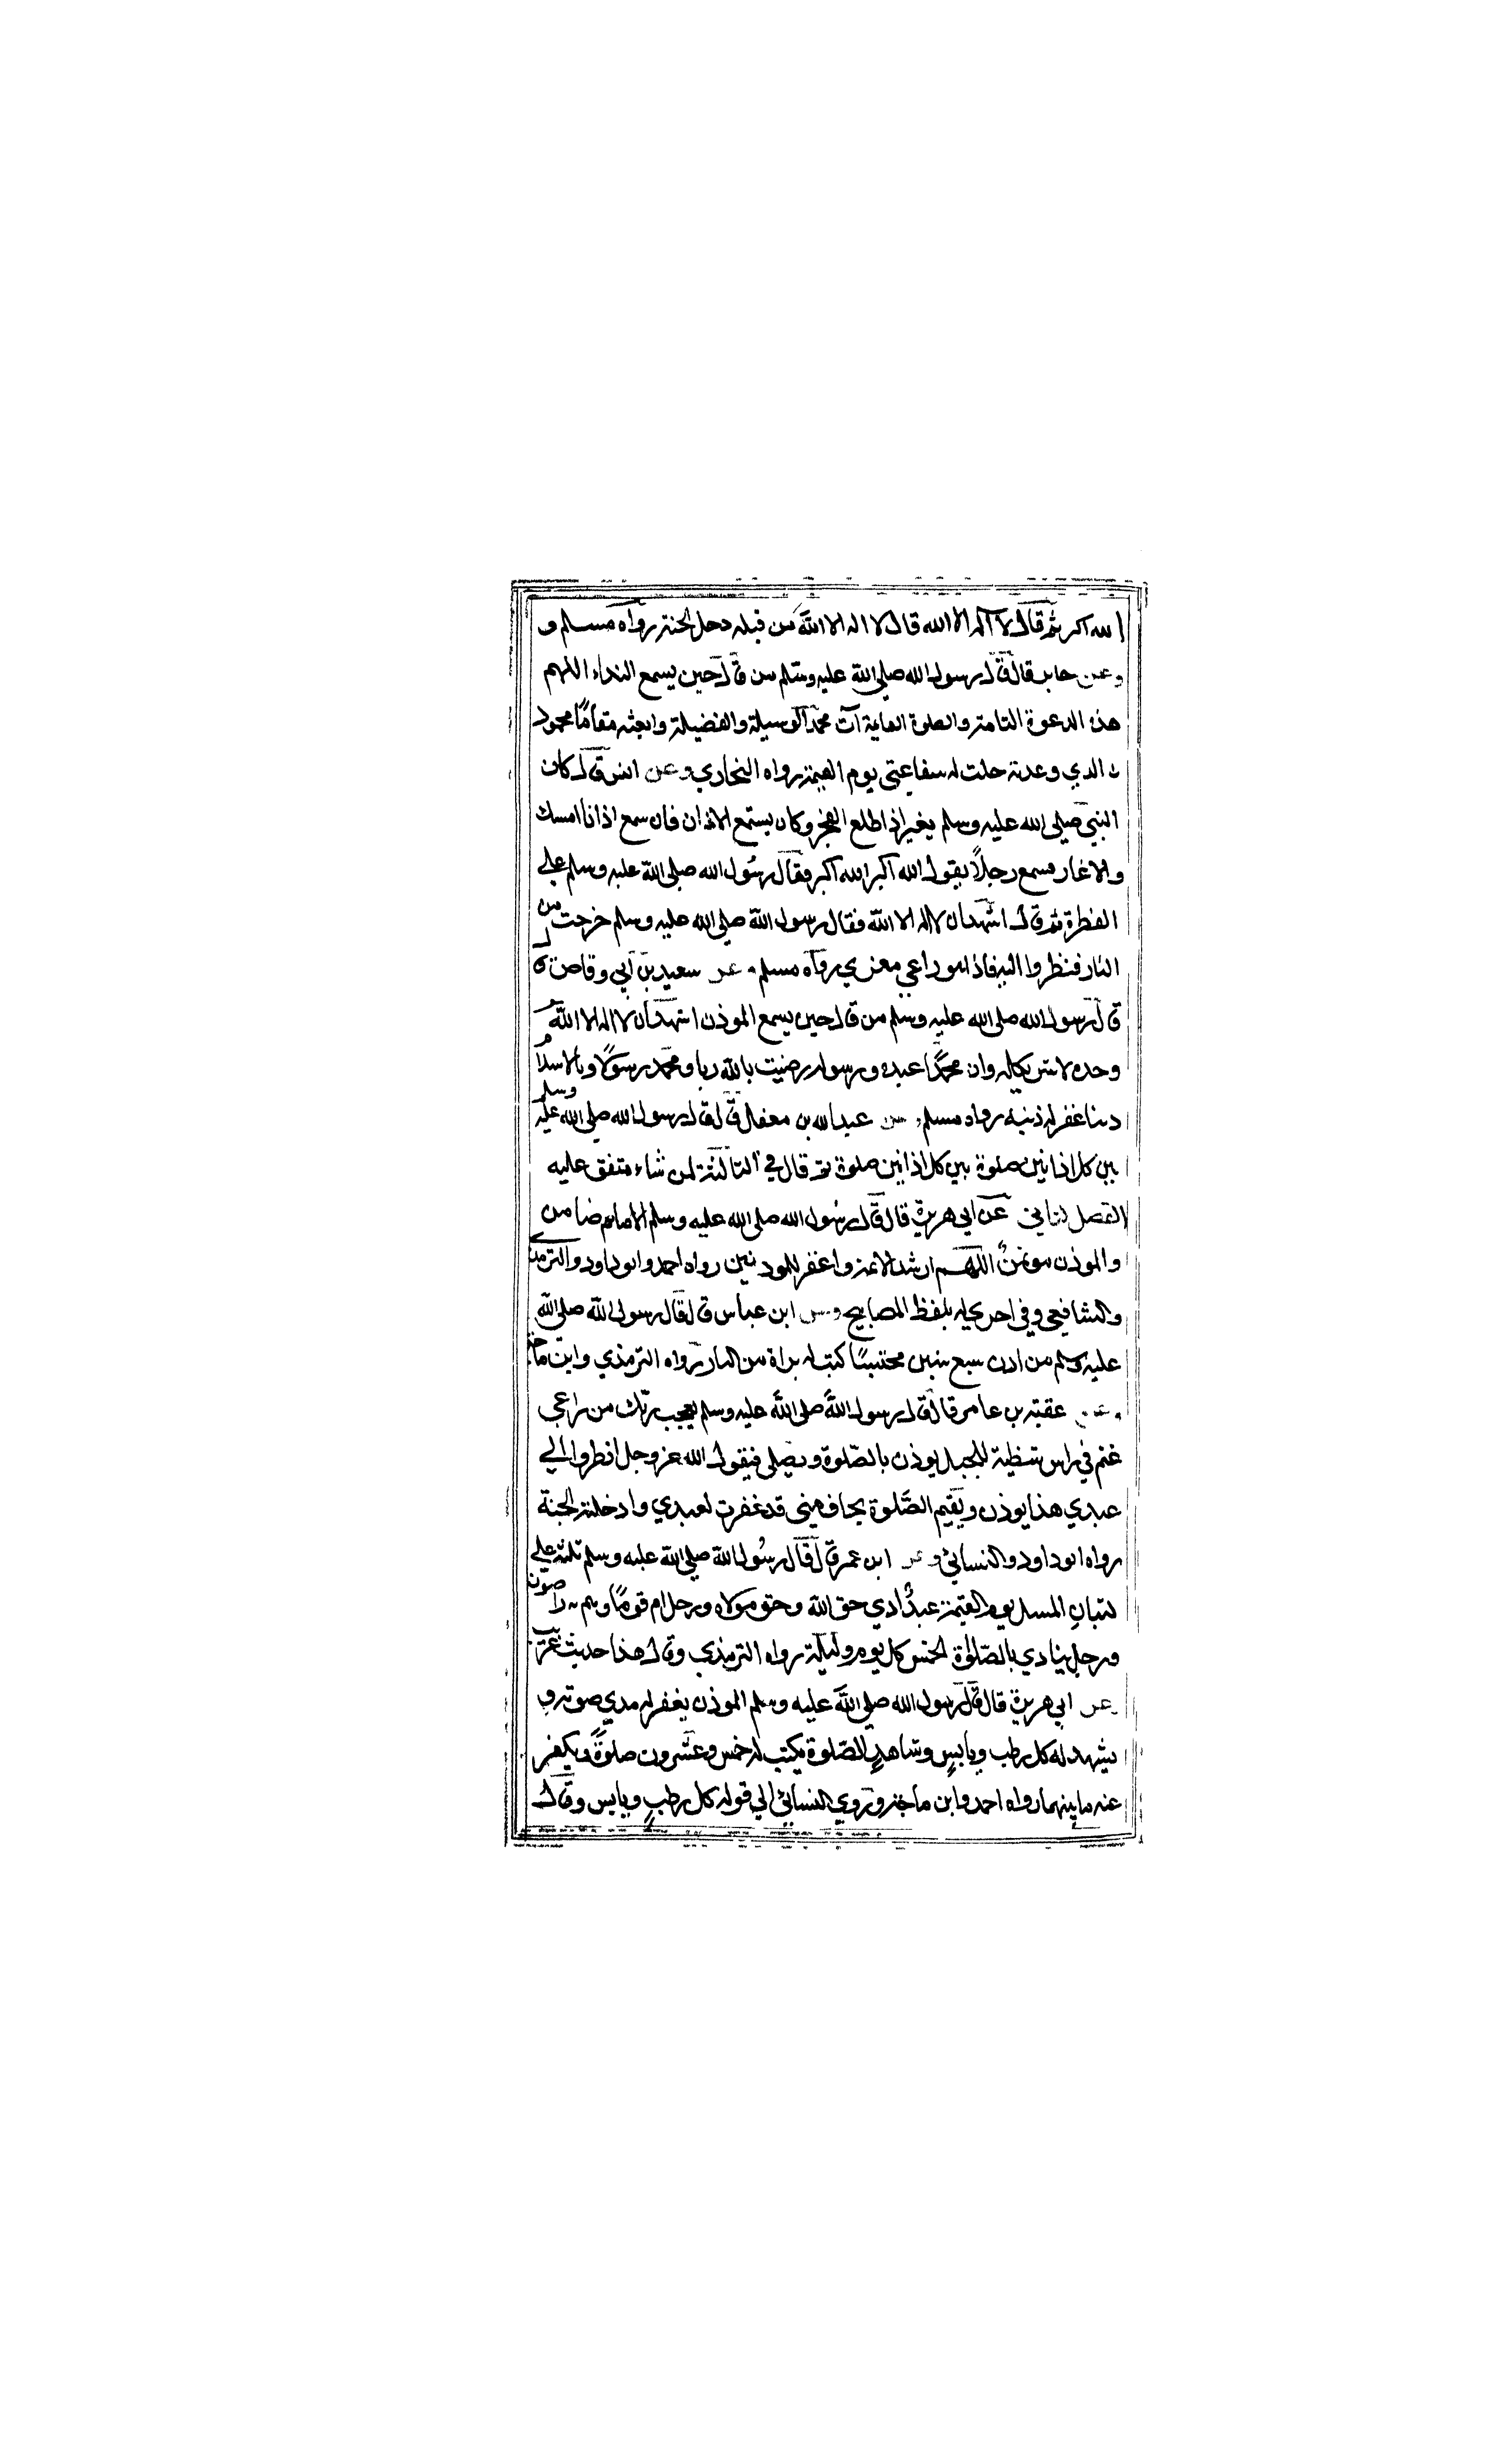 الله اكبر ثم قال لا اله الا الله قال لا اله الا الله من قبله دخل الجنة رواه مسلم و
وعن جابر قال قال رسول الله صلي الله عليه وسلم من قال حين يسمع النداء اللهم
هذه الدعوة التامة والصلوة القايمة آت محمدا الوسيلة والفضيلة وابعثه مقامًا محمود
ن الذي وعدته حلت له شفاعتي يوم القيمة رواه البخاري وعن انس قال كان
النبي صلي الله عليه وسلم يغير اذا طلع الفجر وكان يستمع الاذان فان سمع اذانا امسك
والا اغار فسمع رجلاً يقول الله اكبر الله اكبر فقال رسول الله صلي الله عليه وسلم علي
الفطرة ثم قال اشهد ان لا اله الا الله فقال رسول الله صلي الله عليه وسلم خرجت من
النار فنظروا اليه فاذا هو راعي معزي رواه مسلم عن سعيد بن ابي وقاص قال
قال رسول الله صلي الله عليه وسلم من قال حين يسمع الموذن اشهد ان لا اله الا الله
وحده لا شريك له وان محمدًا عبده ورسوله رضيت بالله ربا وبمحمد رسولا وبالاسلام
دينا غفر له ذنبه رواه مسلم عن عبد الله بن مغفل قال قال رسول الله صلي الله عليه وسلم
بين كل اذانين صلوة بين كل اذانين صلوة ثم قال في الثالثة لمن شاء متفق عليه
الفصل الثاني عن ابي هريرة قال قال رسول الله صلي الله عليه وسلم الامام ضامن
والموذن موتمنٌ اللهم ارشد الايمة واغفر للموذنين رواه احمد وابو داود والترمذي
والشافعي وفي اخري له بلفظ المصابيح وعن ابن عباس قال قال رسول الله صلي الله
عليه وسلم من اذن سبع سنين محتسبًا كتب له براة من النار رواه الترمذي وابن ماجة
وعن عقبة بن عامر قال قال رسول الله صلي الله عليه وسلم يعجب ربك من راعي
غنم في راس شظية للجبل يوذن بالصّلوة ويصلي فيقول الله عز وجل انظروا الي
عبدي هذا يوذن ويقيم الصّلوة يخاف مني قد غفرت لعبدي وادخلته الجنة
رواه ابو داود والنسائي وعن ابن عمر قال قال رسول الله صلي الله عليه وسلم ثلثة علي
كثبان المسك يوم القيمة عبدٌ ادي حق الله وحق مولاه ورجل ام قومًا وهم به راضون
ورجل ينادي بالصّلوة الخمس كل يوم وليلة رواه الترمذي وقال هذا حديث غريب
وعن ابي هريرة قال قال رسول الله صلي الله عليه وسلم الموذن يغفر له مدي صوته و
يشهد له كل رطب ويابسٍ وشاهد الصّلوة يكتب له خمس وعشرون صلوةً ويكفر
عنه ما بينهما رواه احمد وابن ماجة وروي النسائي الي قوله كل رطبٍ ويابس وقال